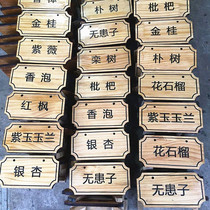 香泡
朴树
枇杷
金桂
无患子
金桂
紫薇
栾树
朴树
香泡
枇杷
花石榴
红枫
香泡
紫玉玉兰
紫玉玉兰
银杏
花石榴
银杏
无患子
无患子